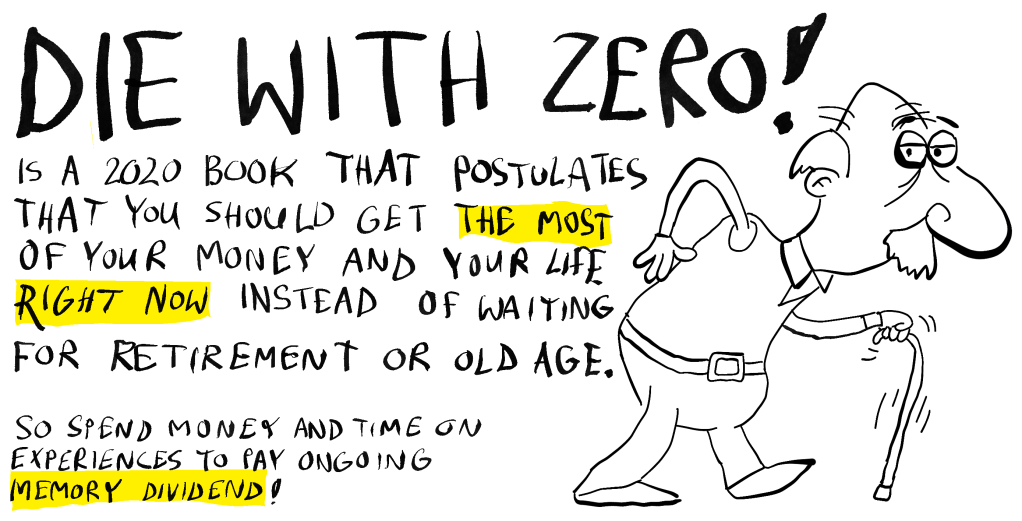 DIE WITH ZERO!
IS A 2020 BOOK THAT POSTULATES
THAT YOU SHOULD GET THE MOST
OF YOUR MONEY AND YOUR LIFE
RIGHT NOW INSTEAD OF WAITING
FOR RETIREMENT OR OLD AGE.
SO SPEND MONEY AND TIME ON
EXPERIENCES TO PAY ONGOING
MEMORY DIVIDEND!